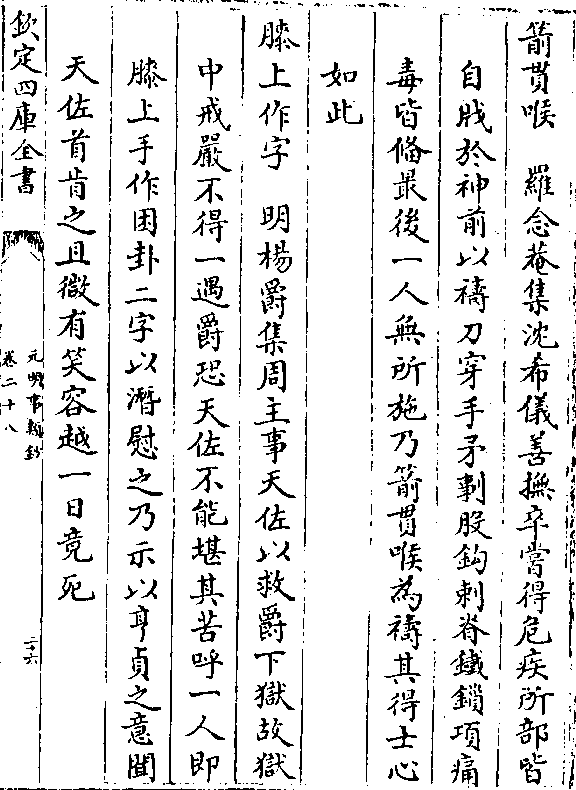 箭貫喉　羅念菴集沈希儀善撫卒嘗得危疾所部皆
自戕於神前以禱刀穿手矛剚股鈎刺脊鐵鎖項痛
毒皆備最後一人無所施乃箭貫喉為禱其得士心
如此
膝上作字　明楊爵集周主事天佐以救爵下獄故獄
中戒嚴不得一遇爵恐天佐不能堪其苦呼一人即
膝上手作困卦二字以漸慰之乃示以亨貞之意聞
天佐首肯之且微有笑容越一日竟死
欽定四庫全書
元明事類鈔
卷二十八
三十六